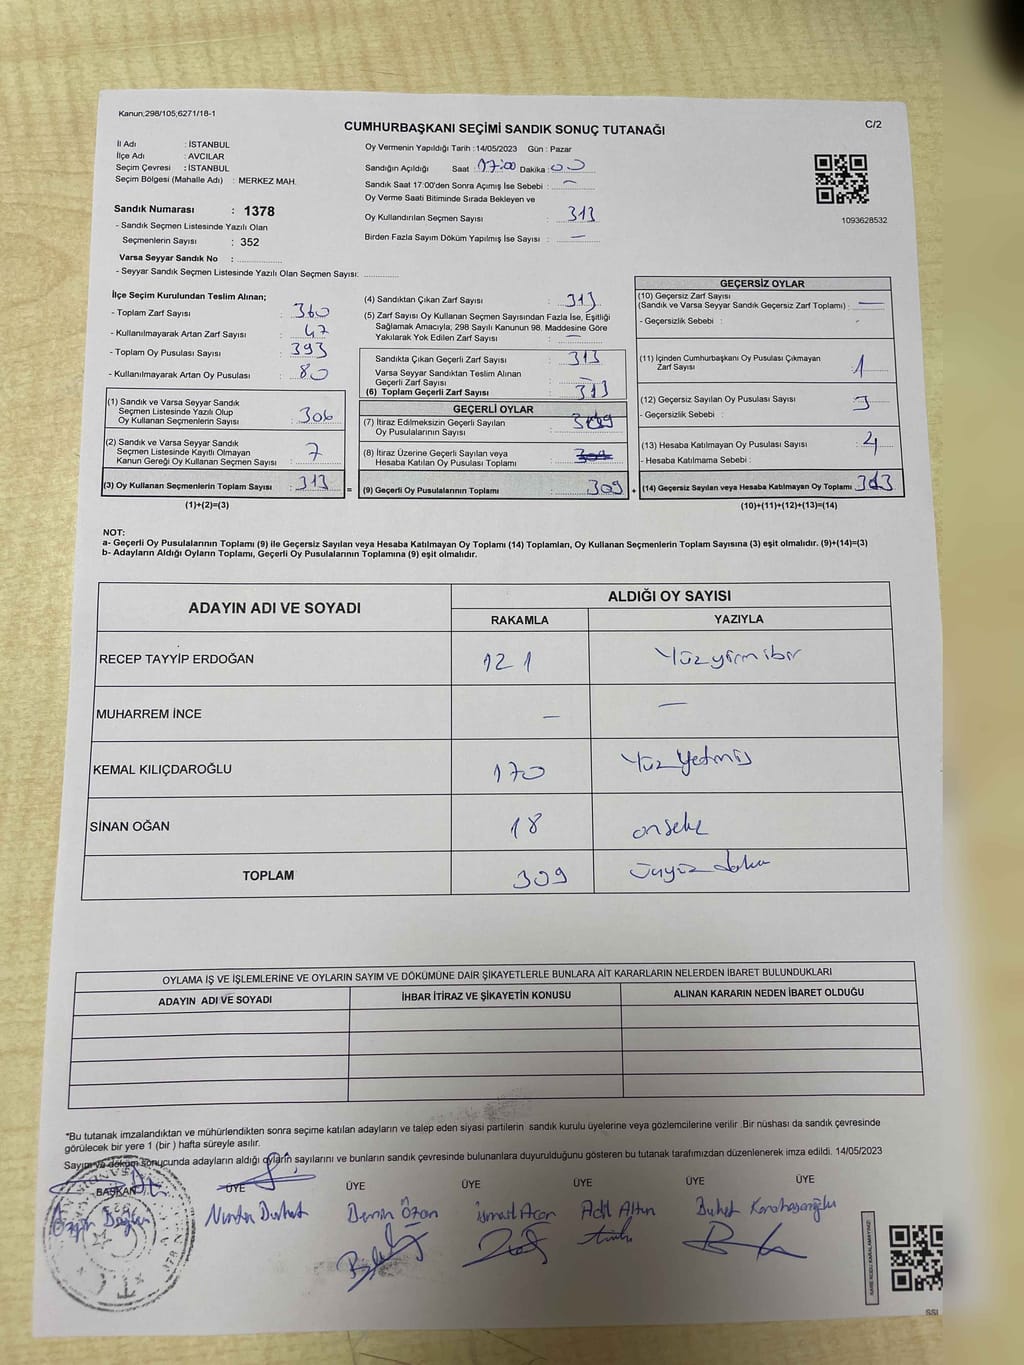 Kanun;298/105;6271/18-1
C/2
CUMHURBAŞKANI SEÇİMİ SANDIK SONUÇ TUTANAĞI
İl Adı : İSTANBUL
İlçe Adı : AVCILAR
Seçim Çevresi : İSTANBUL
Seçim Bölgesi (Mahalle Adı) : MERKEZ MAH.
Sandık Numarası : 1378
- Sandık Seçmen Listesinde Yazılı Olan
Seçmenlerin Sayısı : 352
Varsa Seyyar Sandık No :
- Seyyar Sandık Seçmen Listesinde Yazılı Olan Seçmen Sayısı:
Oy Vermenin Yapıldığı Tarih : 14/05/2023 Gün : Pazar
Sandığın Açıldığı Saat : 17:00 Dakika : 00
Sandık Saat 17:00'den Sonra Açımış İse Sebebi : —
Oy Verme Saati Bitiminde Sırada Bekleyen ve
Oy Kullandırılan Seçmen Sayısı : 313
Birden Fazla Sayım Döküm Yapılmış İse Sayısı : —
1093628532
İlçe Seçim Kurulundan Teslim Alınan;
- Toplam Zarf Sayısı : 360
- Kullanılmayarak Artan Zarf Sayısı : 47
- Toplam Oy Pusulası Sayısı : 393
- Kullanılmayarak Artan Oy Pusulası : 80
(1) Sandık ve Varsa Seyyar Sandık
Seçmen Listesinde Yazılı Olup
Oy Kullanan Seçmenlerin Sayısı : 306
(2) Sandık ve Varsa Seyyar Sandık
Seçmen Listesinde Kayıtlı Olmayan
Kanun Gereği Oy Kullanan Seçmen Sayısı : 7
(3) Oy Kullanan Seçmenlerin Toplam Sayısı : 313 =
(1)+(2)=(3)
(4) Sandıktan Çıkan Zarf Sayısı : 313
(5) Zarf Sayısı Oy Kullanan Seçmen Sayısından Fazla İse, Eşitliği
Sağlamak Amacıyla; 298 Sayılı Kanunun 98. Maddesine Göre
Yakılarak Yok Edilen Zarf Sayısı : —
Sandıkta Çıkan Geçerli Zarf Sayısı : 313
Varsa Seyyar Sandıktan Teslim Alınan
Geçerli Zarf Sayısı : —
(6) Toplam Geçerli Zarf Sayısı : 313
GEÇERLİ OYLAR
(7) İtiraz Edilmeksizin Geçerli Sayılan
Oy Pusulalarının Sayısı :
(8) İtiraz Üzerine Geçerli Sayılan veya
Hesaba Katılan Oy Pusulası Toplamı :
(9) Geçerli Oy Pusulalarının Toplamı : 309 +
GEÇERSİZ OYLAR
(10) Geçersiz Zarf Sayısı
(Sandık ve Varsa Seyyar Sandık Geçersiz Zarf Toplamı) : —
- Geçersizlik Sebebi : -
(11) İçinden Cumhurbaşkanı Oy Pusulası Çıkmayan
Zarf Sayısı : 1
(12) Geçersiz Sayılan Oy Pusulası Sayısı : 3
- Geçersizlik Sebebi :
(13) Hesaba Katılmayan Oy Pusulası Sayısı : 4
- Hesaba Katılmama Sebebi :
(14) Geçersiz Sayılan veya Hesaba Katılmayan Oy Toplamı :
(10)+(11)+(12)+(13)=(14)
NOT:
a- Geçerli Oy Pusulalarının Toplamı (9) ile Geçersiz Sayılan veya Hesaba Katılmayan Oy Toplamı (14) Toplamları, Oy Kullanan Seçmenlerin Toplam Sayısına (3) eşit olmalıdır. (9)+(14)=(3)
b- Adayların Aldığı Oyların Toplamı, Geçerli Oy Pusulalarının Toplamına (9) eşit olmalıdır.
ADAYIN ADI VE SOYADI
ALDIĞI OY SAYISI
RAKAMLA YAZIYLA
RECEP TAYYİP ERDOĞAN 121 Yüzyirmibir
MUHARREM İNCE — —
KEMAL KILIÇDAROĞLU 170 Yüz Yetmiş
SİNAN OĞAN 18 onsekiz
TOPLAM 309 üçyüz dokuz
OYLAMA İŞ VE İŞLEMLERİNE VE OYLARIN SAYIM VE DÖKÜMÜNE DAİR ŞİKAYETLERLE BUNLARA AİT KARARLARIN NELERDEN İBARET BULUNDUKLARI
ADAYIN ADI VE SOYADI İHBAR İTİRAZ VE ŞİKAYETİN KONUSU ALINAN KARARIN NEDEN İBARET OLDUĞU
*Bu tutanak imzalandıktan ve mühürlendikten sonra seçime katılan adayların ve talep eden siyasi partilerin sandık kurulu üyelerine veya gözlemcilerine verilir .Bir nüshası da sandık çevresinde
görülecek bir yere 1 (bir ) hafta süreyle asılır.
Sayım ve döküm sonucunda adayların aldığı oyların sayılarını ve bunların sandık çevresinde bulunanlara duyurulduğunu gösteren bu tutanak tarafımızdan düzenlenerek imza edildi. 14/05/2023
BAŞKAN ÜYE ÜYE ÜYE ÜYE ÜYE ÜYE
İsmail Acar Adil Altun Buket Karahasanoğlu